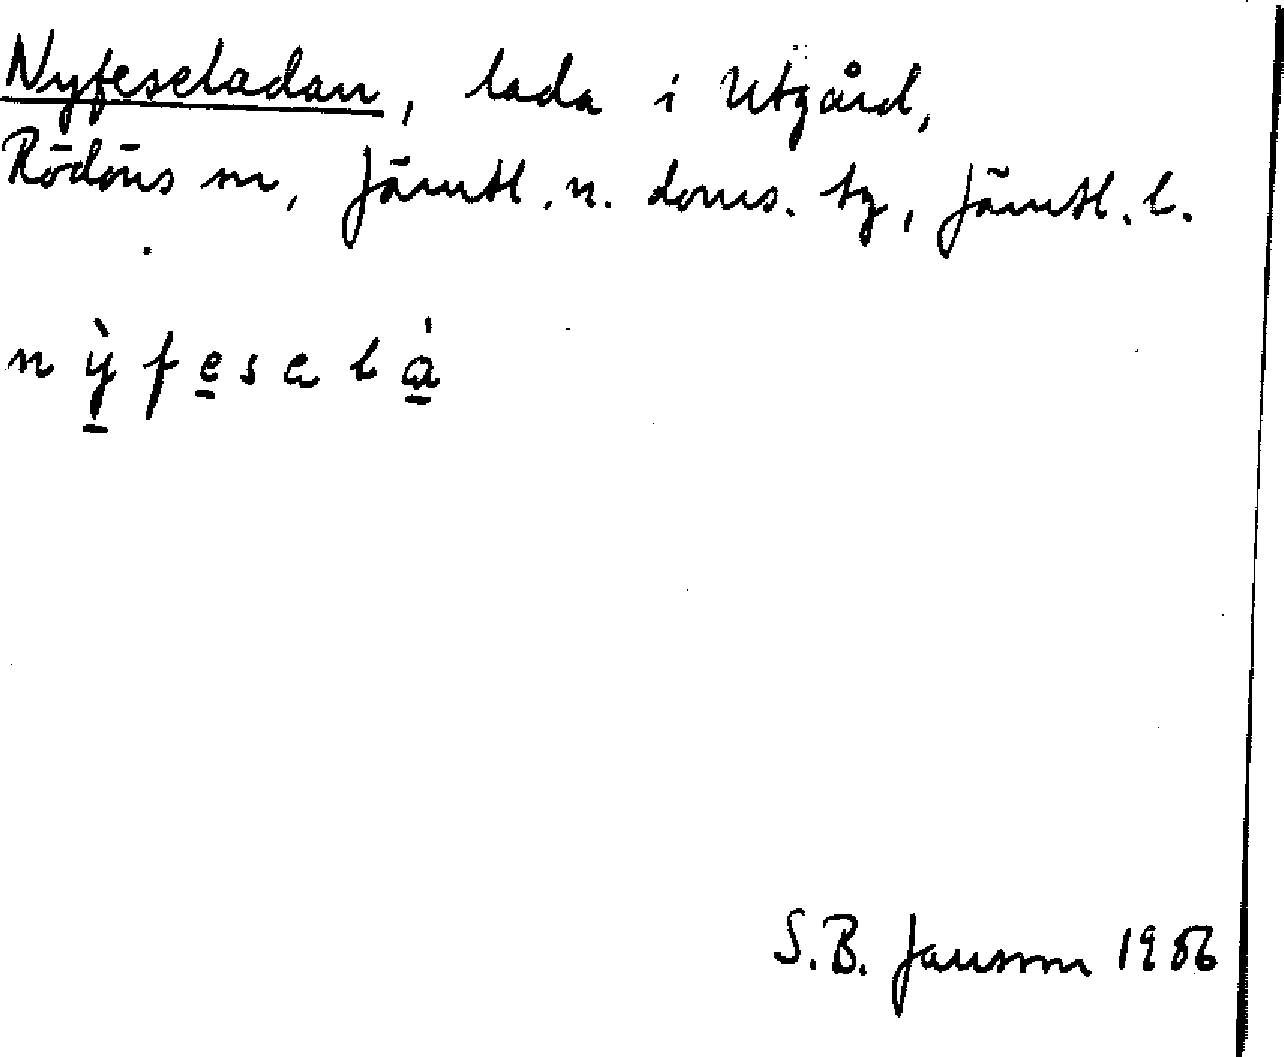 Nyfeseladan, lada i Utgård,
Rödöns sn, Jämtl. n. doms. tg, Jämtl. l.
n ỳ̠ f e̠ s e l a̠̍
S.B. Jansson 1986